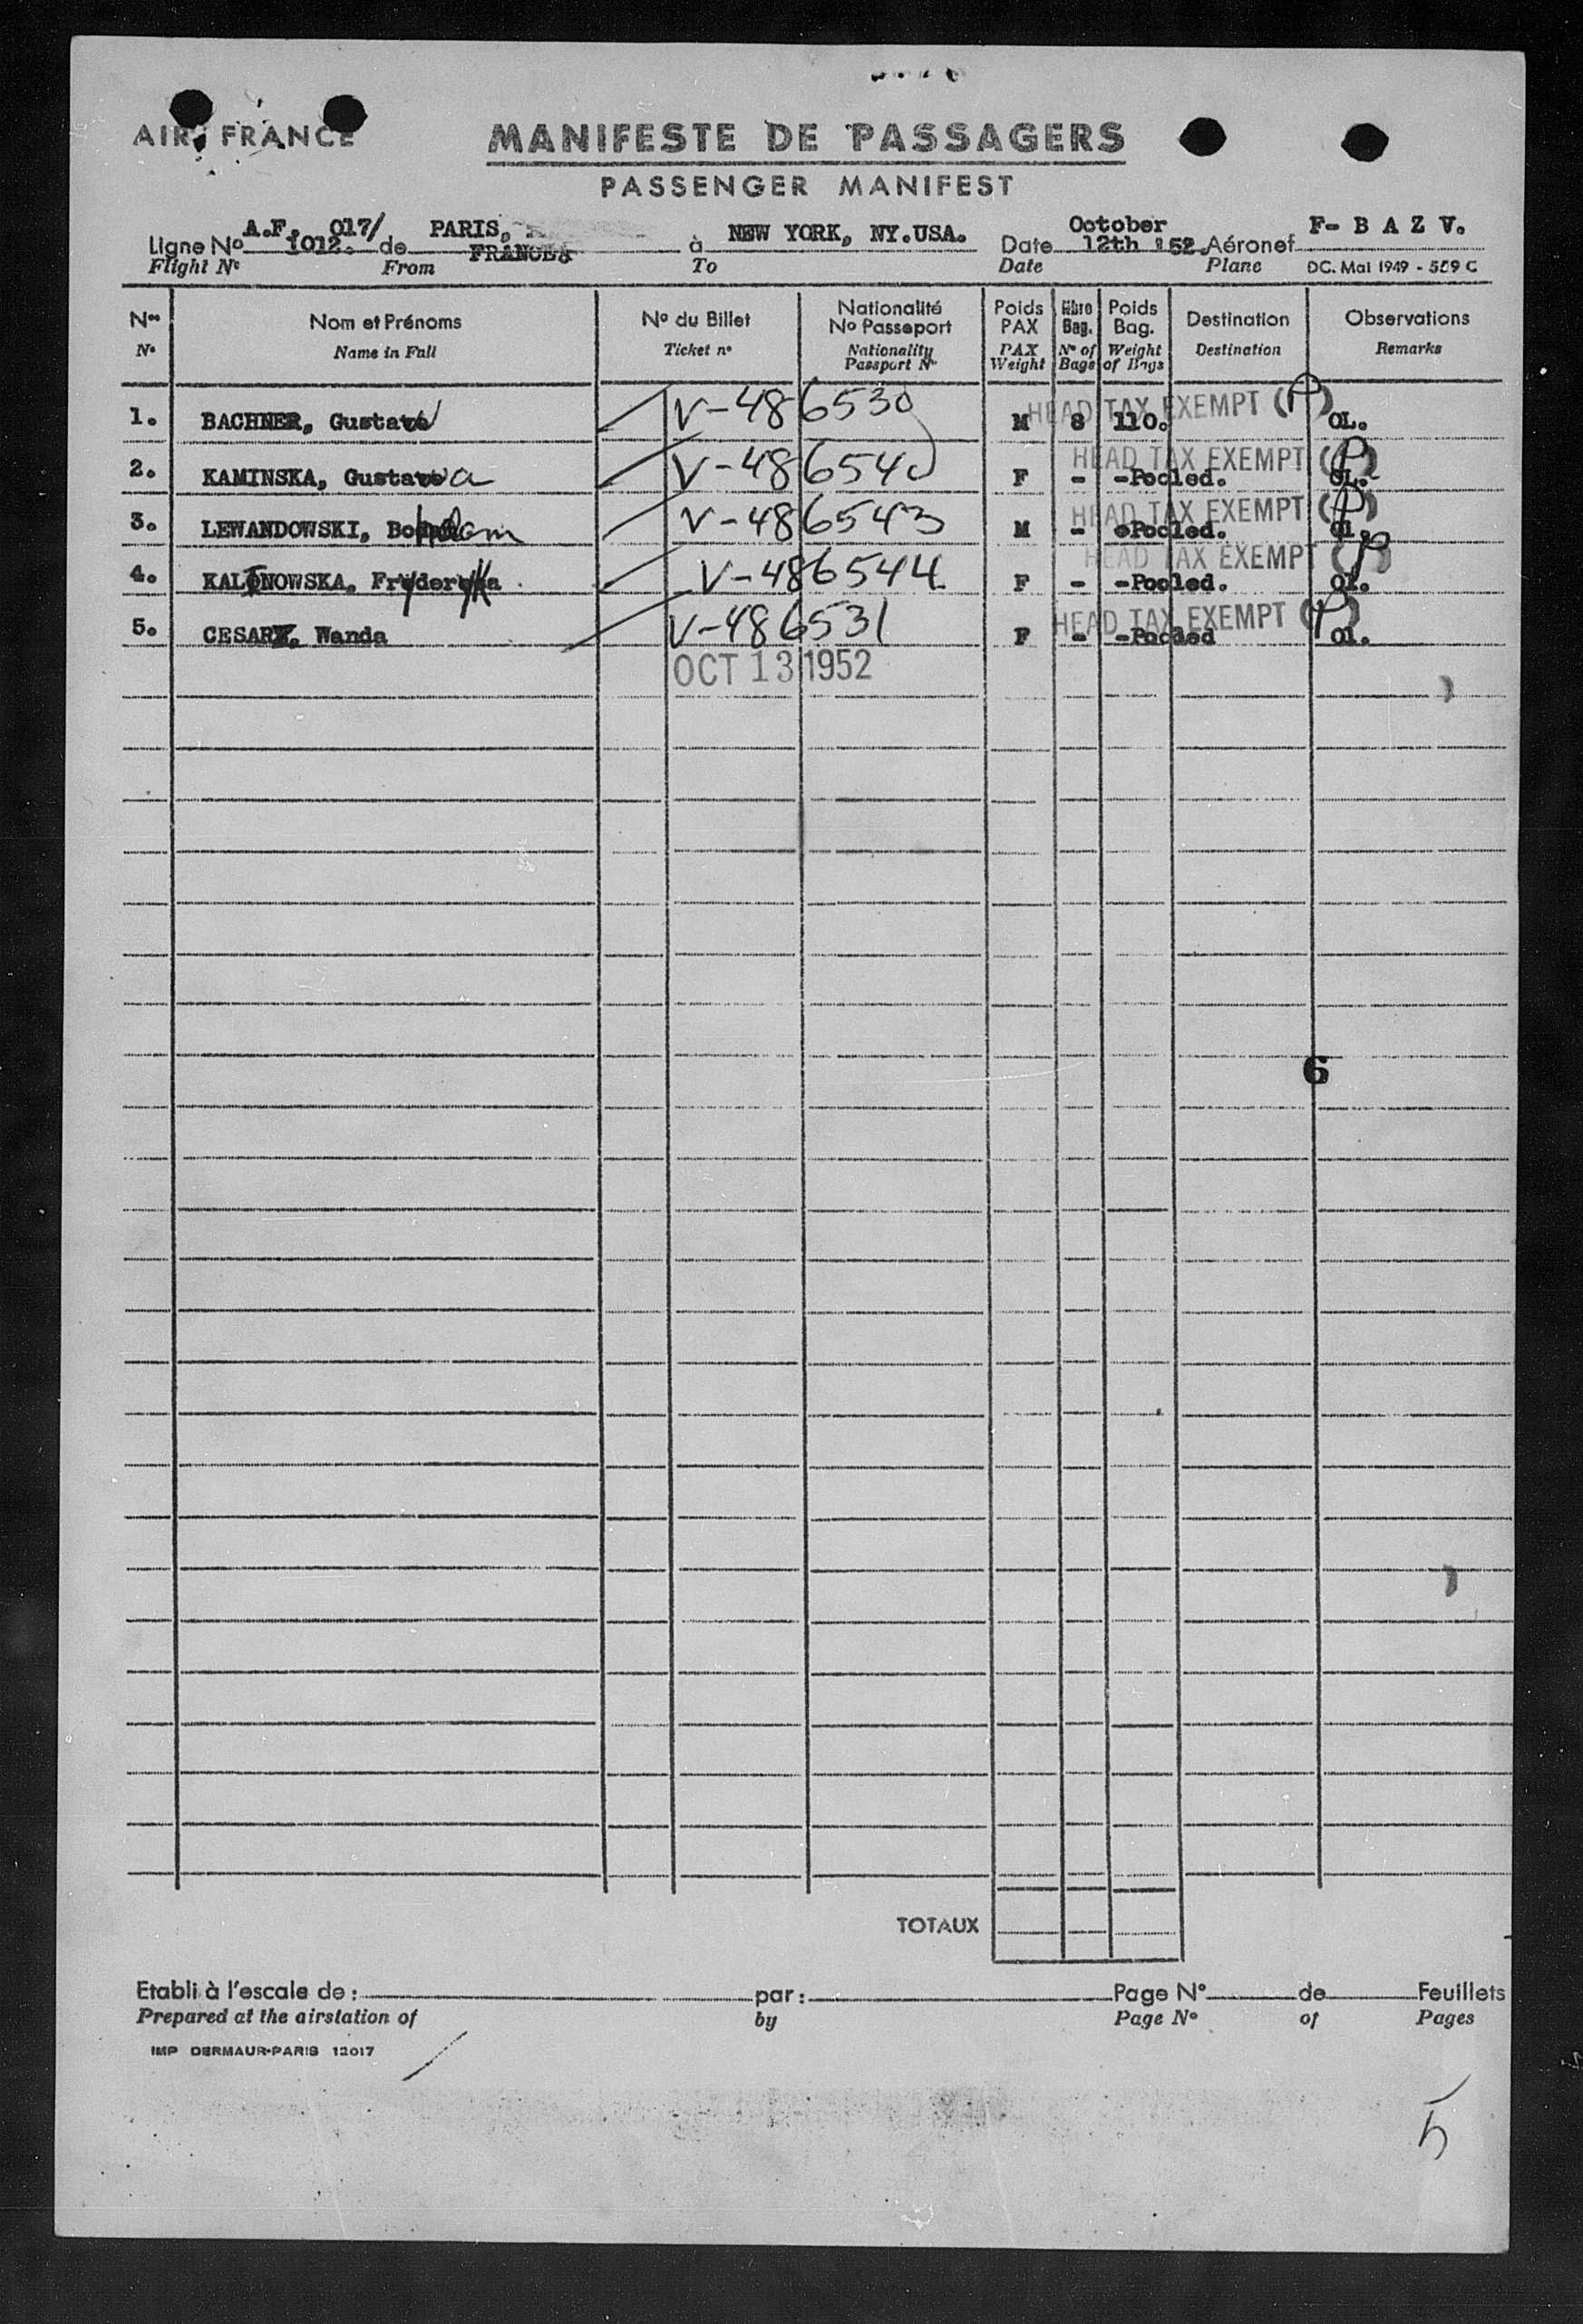 AIR FRANCE
MANIFESTE DE PASSAGERS
PASSENGER MANIFEST
Ligne No A.F. 017/ 1012. de PARIS, FRANCE à NEW YORK, NY.USA. Date October 12th 152. Aéronef F- B A Z V.
Flight No From To Date Plane DC. Mai 1949 - 559 C
Nos Nom et Prénoms No du Billet Nationalité No Passeport Poids PAX Nbre Bag. Poids Bag. Destination Observations
No Name in Full Ticket no Nationality Passport No PAX Weight No of Bags Weight of Bags Destination Remarks
1. BACHNER, Gustaw V-486530 M 8 110. HEAD TAX EXEMPT (P) OL.
2. KAMINSKA, Gustawa V-486540 F - -Pooled. HEAD TAX EXEMPT (P) OL.
3. LEWANDOWSKI, Bohdam V-486543 M - Pooled. HEAD TAX EXEMPT (P) Ol.
4. KALINOWSKA, Fryderyka V-486544 F - -Pooled. HEAD TAX EXEMPT (P) OL.
5. CESARZ, Wanda V-486531 F - -Pooled HEAD TAX EXEMPT (P) Ol.
OCT 13 1952
6
TOTAUX
Etabli à l'escale de : par : Page No de Feuillets
Prepared at the airstation of by Page No of Pages
IMP DERMAUR-PARIS 12017
5